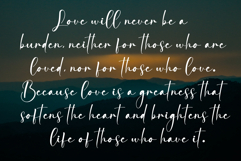 Love will never be a
burden, neither for those who are
loved, nor for those who love.
Because love is a greatness that
softens the heart and brightens the
life of those who have it.